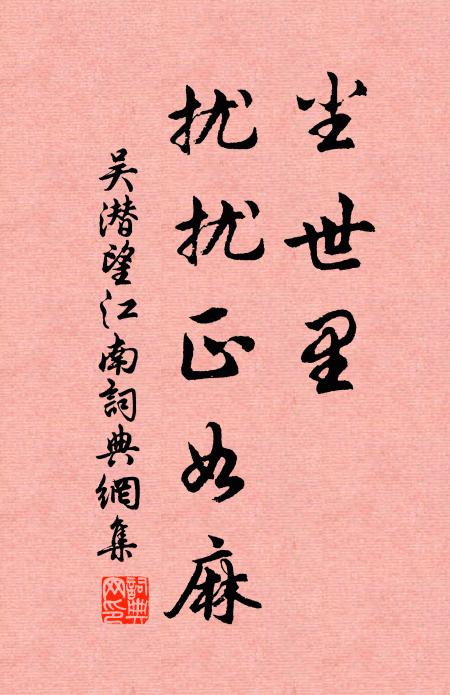 尘世里
扰扰正如麻
吴潜望江南詞典網集
詞典
网印